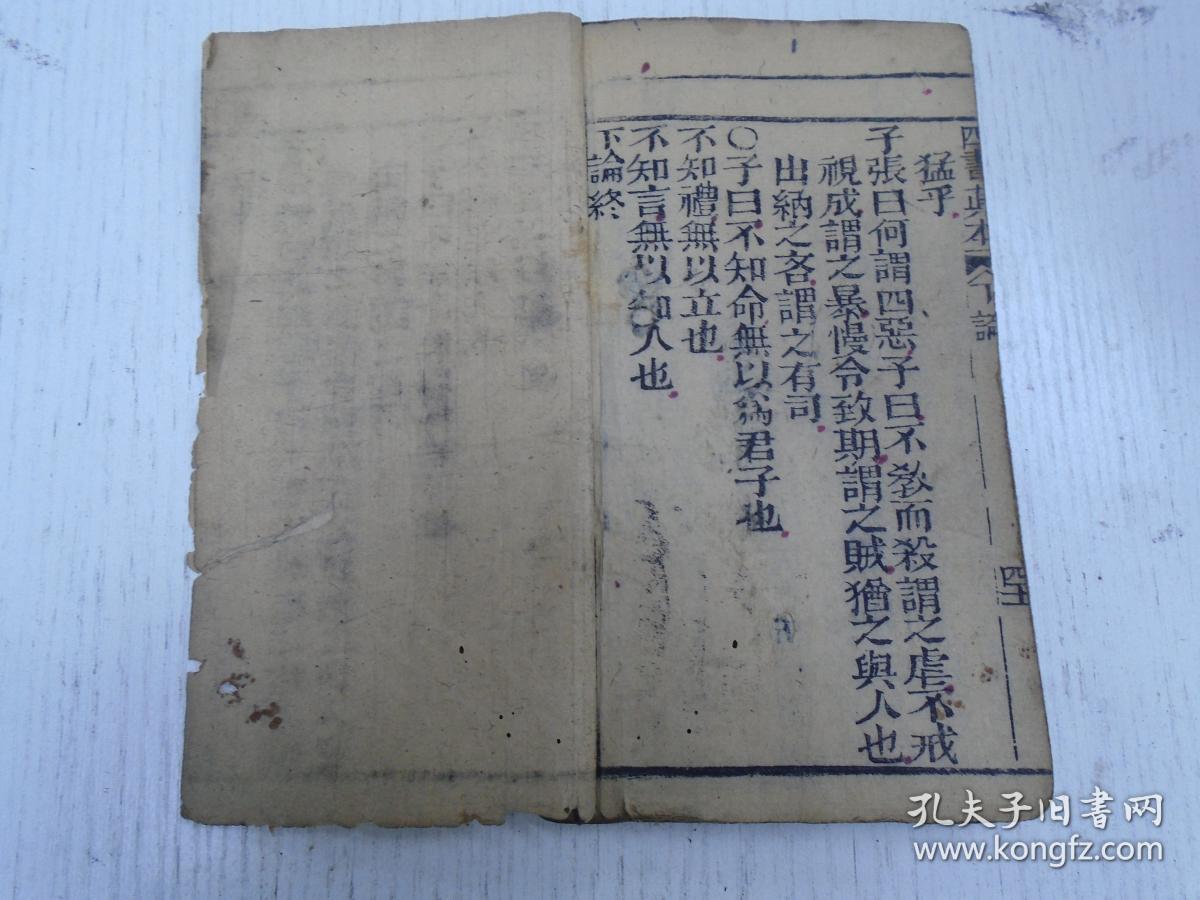 四書真本 下論 四十
猛乎
子張曰何謂四惡子曰不教而殺謂之虐不戒
視成謂之暴慢令致期謂之賊猶之與人也
出納之吝謂之有司
○子曰不知命無以為君子也
不知禮無以立也
不知言無以知人也
下論終
孔夫子旧书网
www.kongfz.com